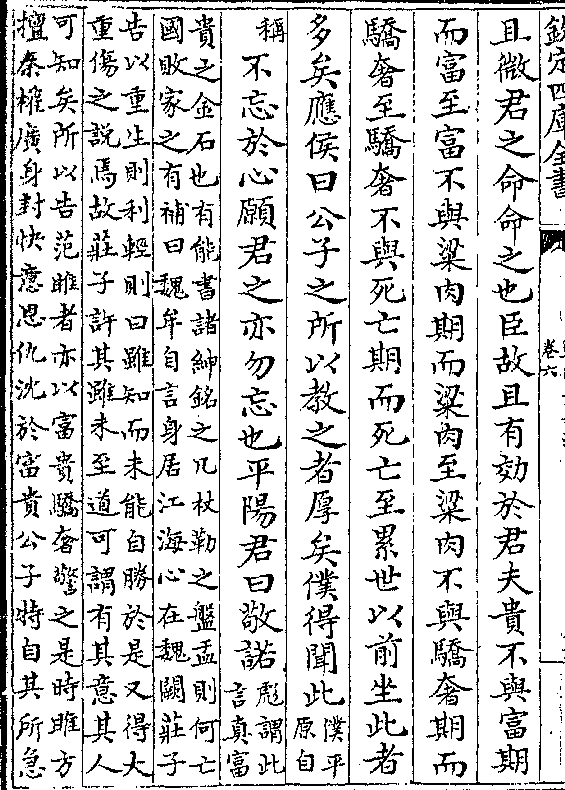 欽定四庫全書
卷六
且微君之命命之也臣故且有効於君夫貴不與富期
而富至富不與粱肉期而粱肉至粱肉不與驕奢期而
驕奢至驕奢不與死亡期而死亡至累世以前坐此者
多矣應侯曰公子之所以教之者厚矣僕得聞此
僕平
原自
稱
不忘於心願君之亦勿忘也平陽君曰敬諾
彪謂此
言真富
貴之金石也有能書諸紳銘之几杖勒之盤盂則何亡
國敗家之有補曰魏牟自言身居江海心在魏闕莊子
告以重生則利輕則曰雖知而未能自勝於是又得大
重傷之說焉故莊子許其雖未至道可謂有其意其人
可知矣所以告范雎者亦以富貴驕奢警之是時雎方
擅秦權廣身封快意恩仇沈於富貴公子特自其所急